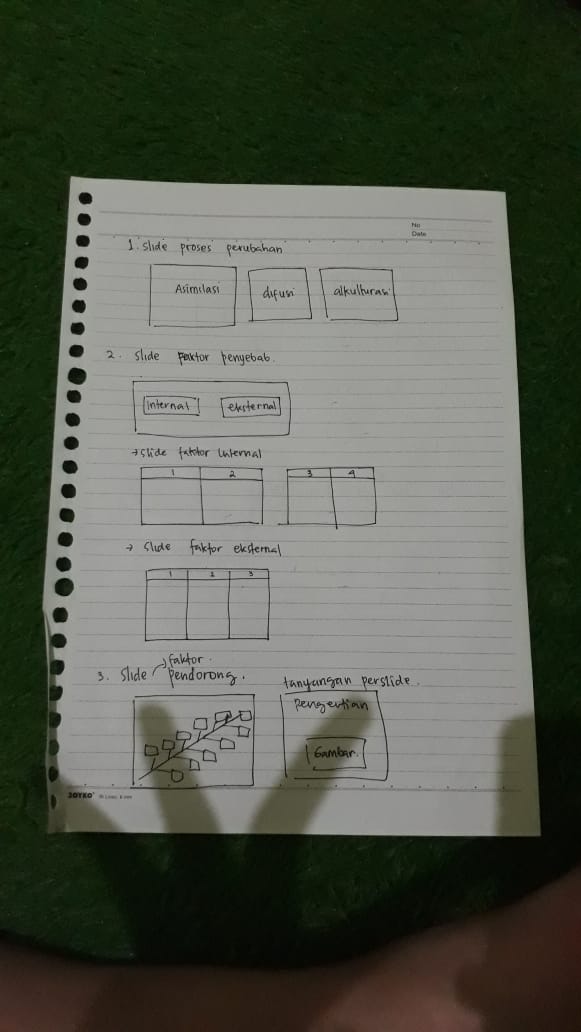 No
Date
1. Slide proses perubahan
Asimilasi
difusi
alkulturasi
2. Slide faktor penyebab.
Internal
eksternal
→ slide faktor Internal
1 2 3 4
→ Slide faktor eksternal
1 2 3
3. Slide → faktor pendorong.
tanyangan perslide.
pengertian
Gambar.
JOYKO